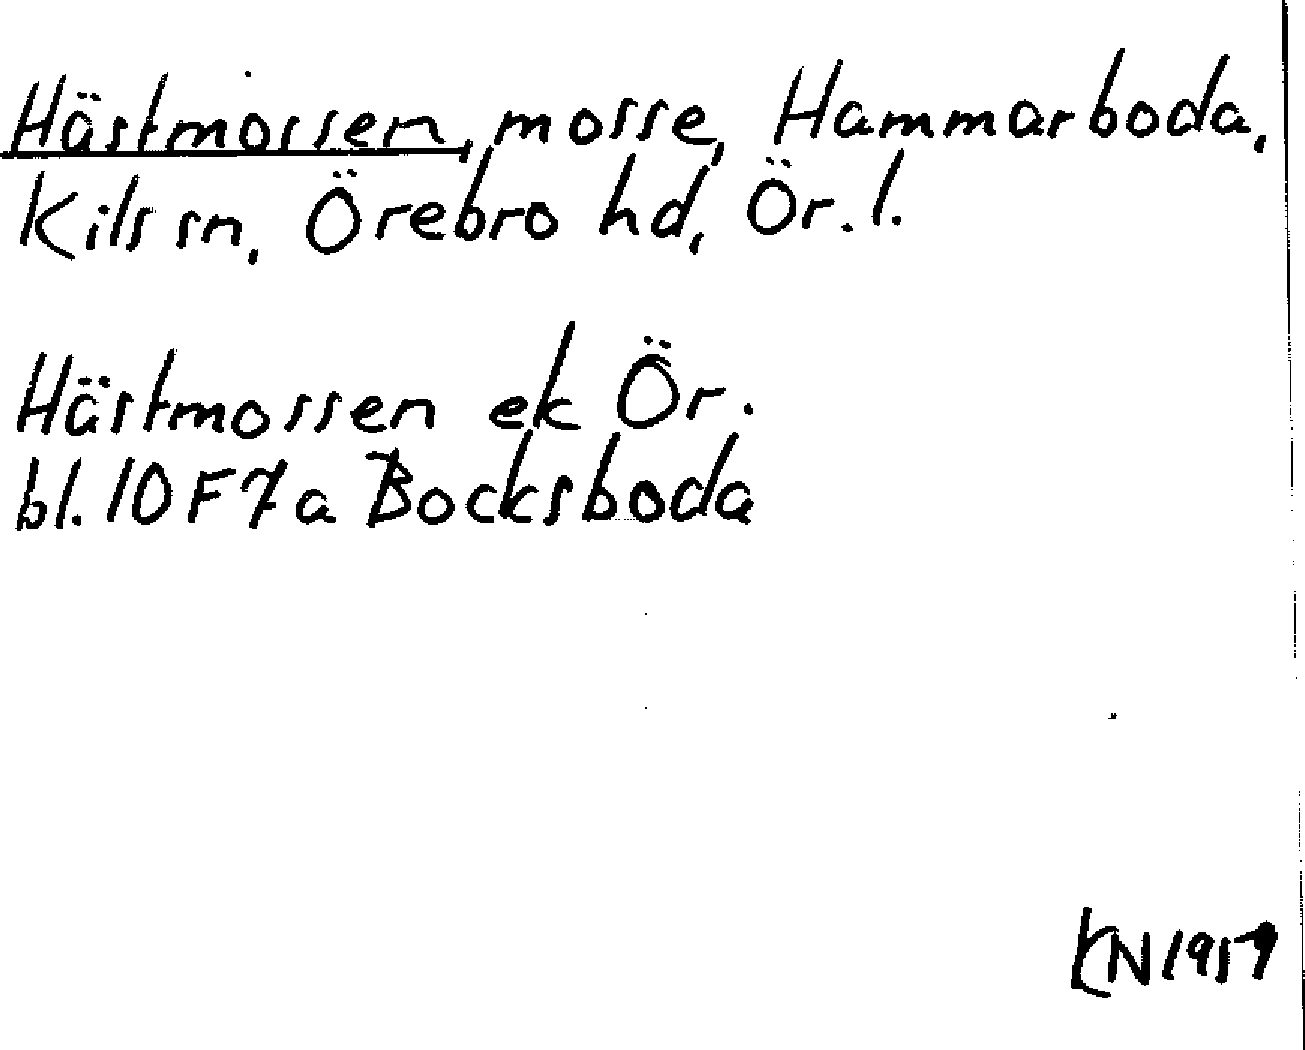 Hästmossen, mosse, Hammarboda,
Kils sn, Örebro hd, Ör. l.
Hästmossen ek Ör.
bl. 10 F 7 a Bocksboda